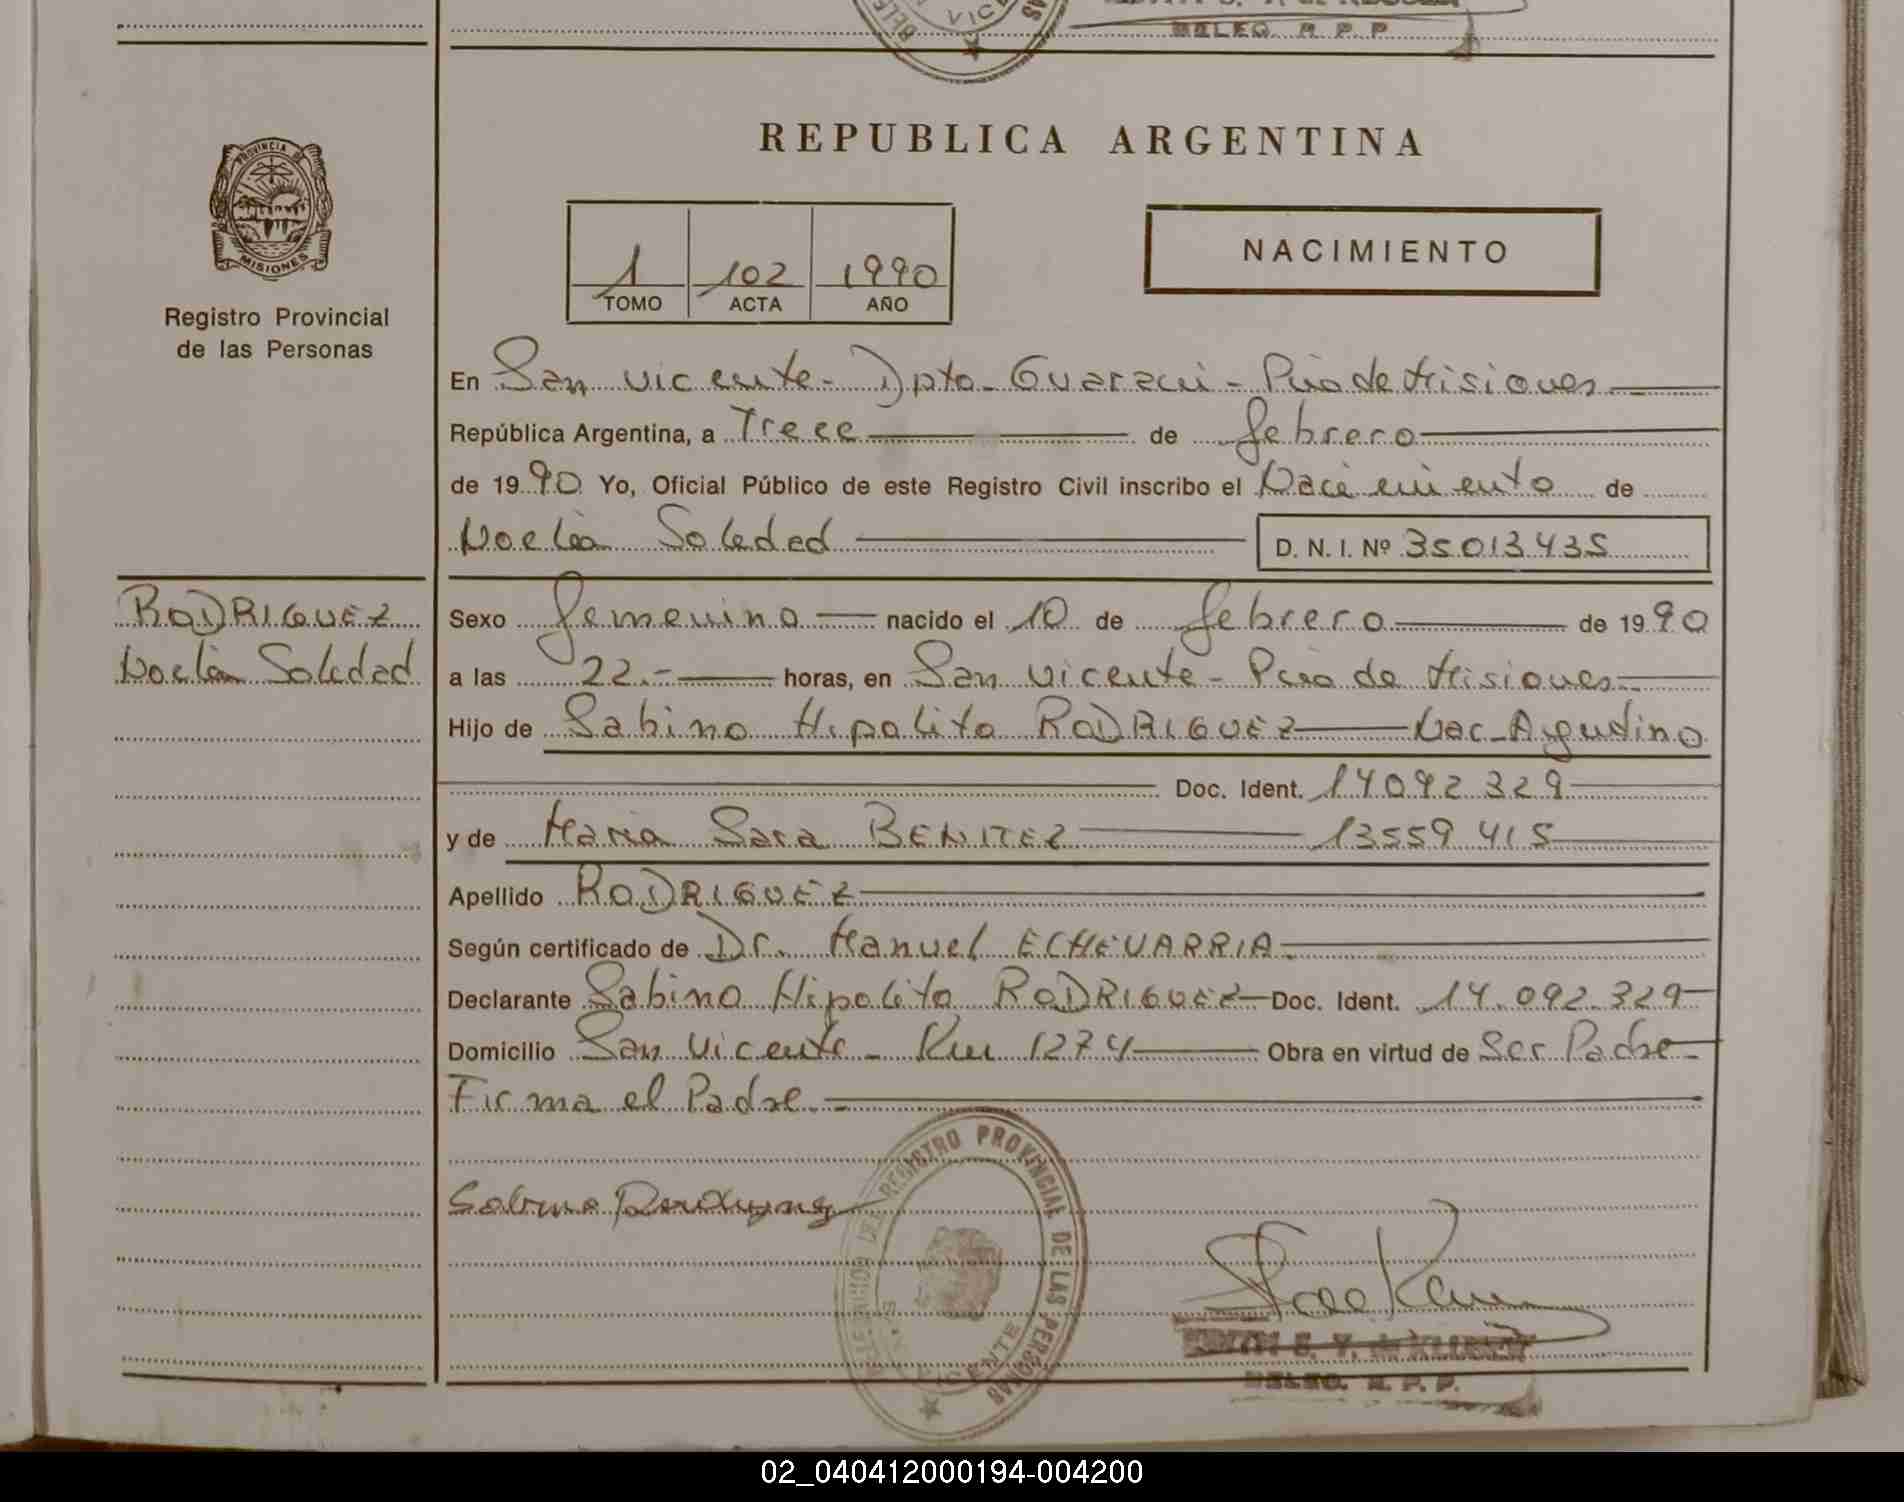 VIC
DELEG. R. P. P.
PROVINCIA DE
MISIONES
Registro Provincial
de las Personas
REPUBLICA ARGENTINA
1 102 1990
TOMO ACTA AÑO
NACIMIENTO
En San Vicente - Dpto - Guarani - Pcia de Misiones
República Argentina, a Trece de febrero
de 1990 Yo, Oficial Público de este Registro Civil inscribo el Nacimiento de
Noelia Soledad D. N. I. Nº 35013435
RODRIGUEZ
Noelia Soledad
Sexo femenino nacido el 10 de febrero de 1990
a las 22.- horas, en San Vicente - Pcia de Misiones
Hijo de Sabino Hipolito RODRIGUEZ Nac-Argentino
Doc. Ident. 14092329
y de Maria Sara BENITEZ 13559415
Apellido RODRIGUEZ
Según certificado de Dr. Manuel ECHEVARRIA
Declarante Sabino Hipolito RODRIGUEZ Doc. Ident. 14.092.329
Domicilio San Vicente - Km 1274 Obra en virtud de Ser Padre
Firma el Padre.-
REGISTRO PROVINCIAL DE LAS PERSONAS
SAN VICENTE
DELEG. R. P. P.
02_040412000194-004200